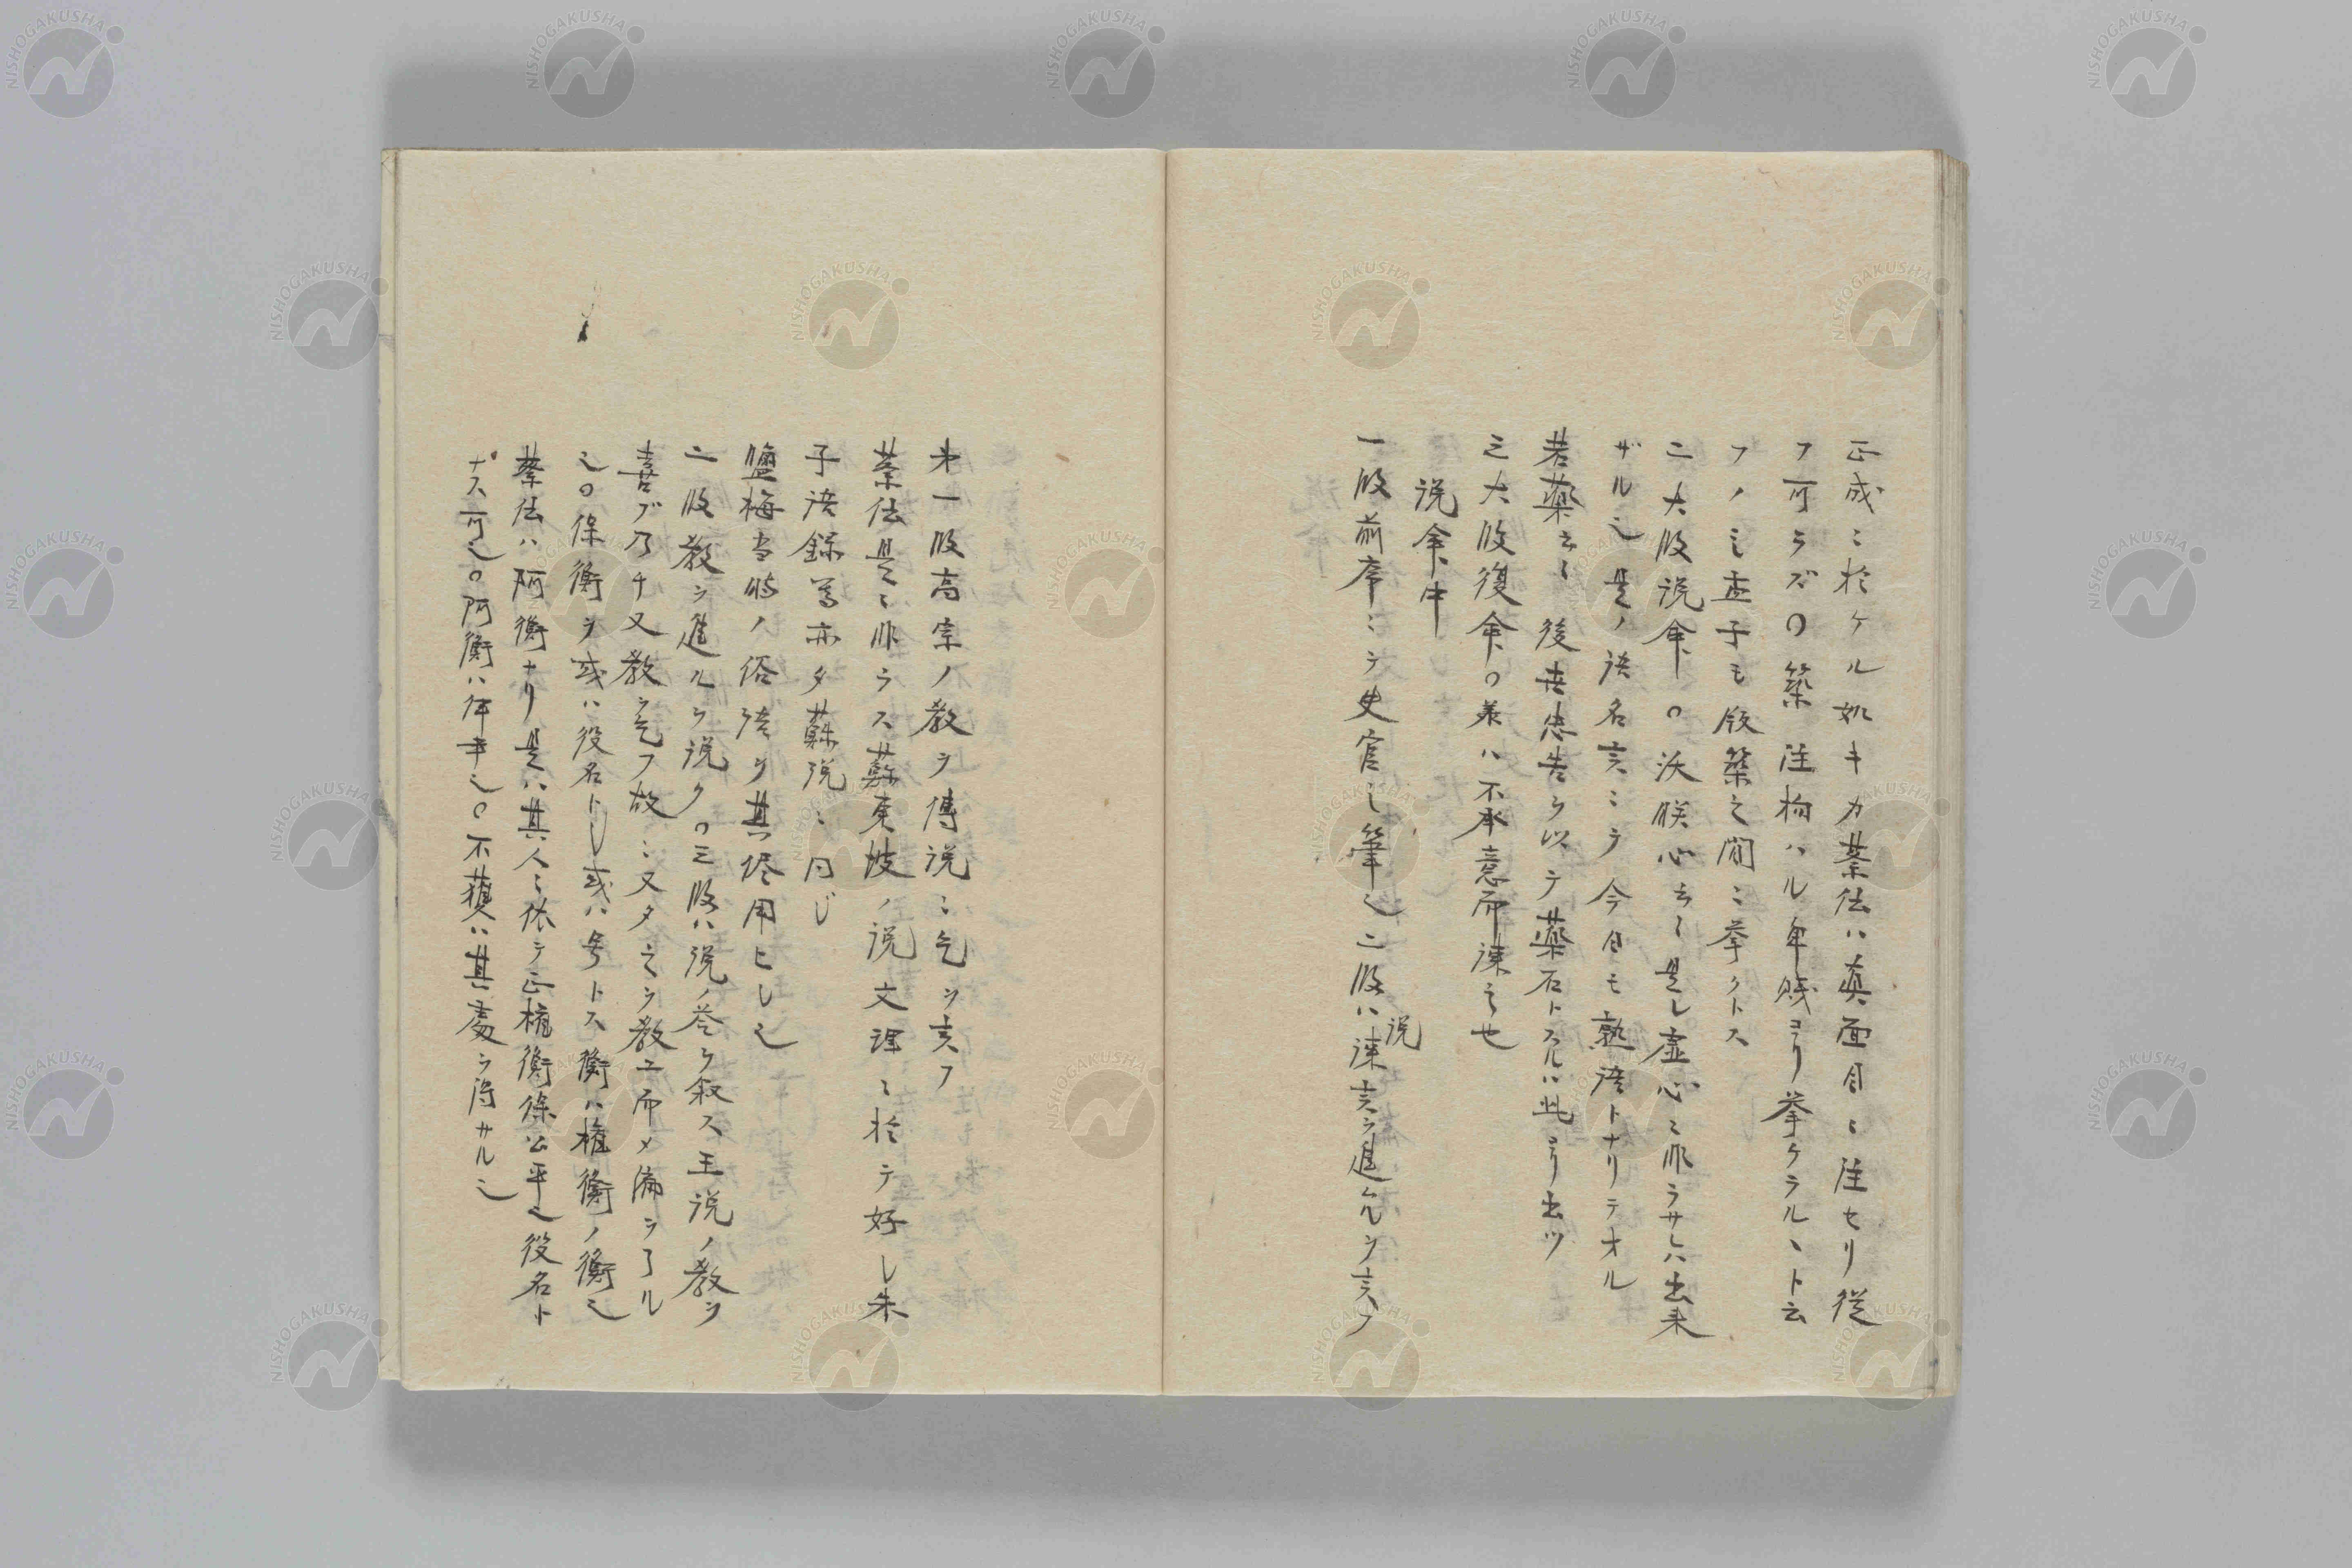 正成ニ於ケル如キカ蔡伝ハ真面目ニ注セリ従
フ可ラズ○築 注拘ハル卑賤ヨリ挙ケラルヽト云
フノミ孟子モ版築之間ニ挙クトス
二大段説命○沃朕心云々是レ虚心ニ非ラサレハ出来
ザル也是ノ語名言ニシテ今日モ熟語トナリテオル
若薬云々 後世忠告ヲ以テ薬石トスルハ此ヨリ出ツ
三大段復命○義ハ不承意而諫之也
説命中
一段前序ニシテ史官之筆也二段ハ説諫言ヲ進ムルヲ言フ
第一段高宗ノ教ヲ傅説ニ乞ヲ言フ
蔡伝是ニ非ラス蘇東坡ノ説文理ニ於テ好シ朱
子語録等亦タ蘇説ニ同じ
鹽梅当時ノ俗語ヲ其侭用ヒシ也
二段教ヲ進ルヲ説ク○三段ハ説ノ答ヲ叙ス王説ノ教ヲ
喜ブ乃チ又教ヲ乞フ故ニ又タ之ヲ教エ而メ篇ヲ了ル
也○保衡ヲ或ハ役名トシ或ハ号トス衡ハ権衡ノ衡也
蔡伝ハ阿衡ナリ是ハ其人ニ依テ正権衡保公平也役名ト
ナス可也○阿衡ハ伴平也○不獲ハ其処ヲ得サル也